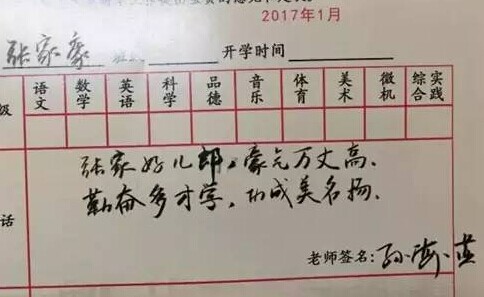 2017年1月
张家豪 开学时间
级 语文 数学 英语 科学 品德 音乐 体育 美术 微机 综合实践
张家好儿郎，豪气万丈高。
勤奋多才学，功成美名扬。
话
老师签名：孙海燕